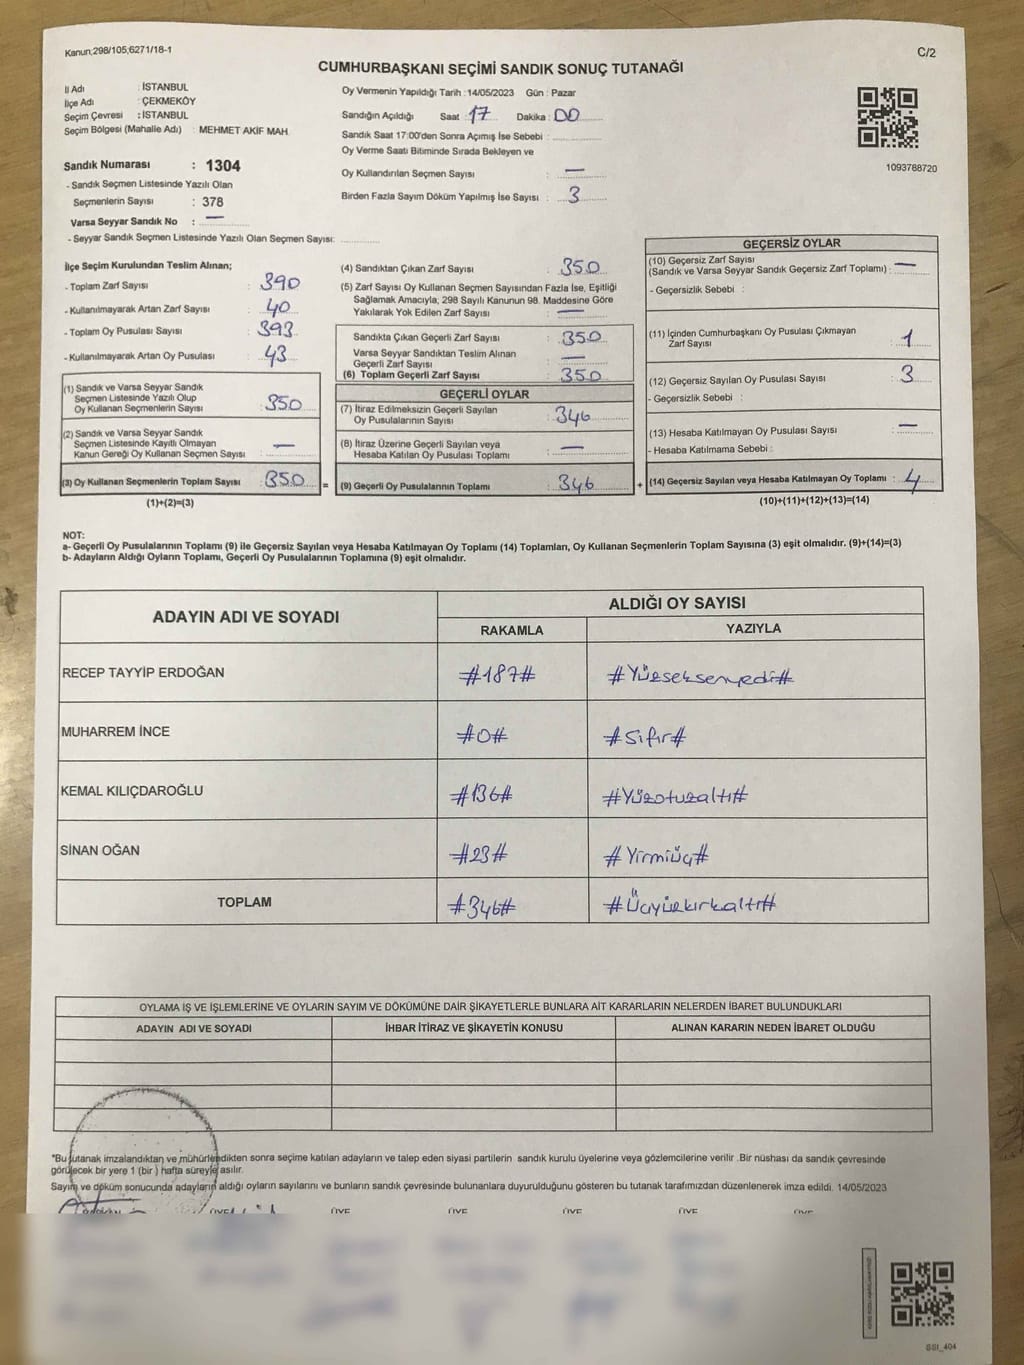 Kanun;298/105;6271/18-1
C/2
CUMHURBAŞKANI SEÇİMİ SANDIK SONUÇ TUTANAĞI
İl Adı : İSTANBUL
İlçe Adı : ÇEKMEKÖY
Seçim Çevresi : İSTANBUL
Seçim Bölgesi (Mahalle Adı) : MEHMET AKİF MAH.
Sandık Numarası : 1304
- Sandık Seçmen Listesinde Yazılı Olan
Seçmenlerin Sayısı : 378
Varsa Seyyar Sandık No : —
- Seyyar Sandık Seçmen Listesinde Yazılı Olan Seçmen Sayısı:
Oy Vermenin Yapıldığı Tarih :14/05/2023 Gün : Pazar
Sandığın Açıldığı Saat :17 Dakika : 00
Sandık Saat 17:00'den Sonra Açımış İse Sebebi :
Oy Verme Saati Bitiminde Sırada Bekleyen ve
Oy Kullandırılan Seçmen Sayısı : —
Birden Fazla Sayım Döküm Yapılmış İse Sayısı : 3
1093788720
İlçe Seçim Kurulundan Teslim Alınan;
- Toplam Zarf Sayısı : 390
- Kullanılmayarak Artan Zarf Sayısı : 40
- Toplam Oy Pusulası Sayısı : 393
- Kullanılmayarak Artan Oy Pusulası : 43
(1) Sandık ve Varsa Seyyar Sandık
Seçmen Listesinde Yazılı Olup
Oy Kullanan Seçmenlerin Sayısı : 350
(2) Sandık ve Varsa Seyyar Sandık
Seçmen Listesinde Kayıtlı Olmayan
Kanun Gereği Oy Kullanan Seçmen Sayısı : —
(3) Oy Kullanan Seçmenlerin Toplam Sayısı : 350 =
(1)+(2)=(3)
(4) Sandıktan Çıkan Zarf Sayısı : 350
(5) Zarf Sayısı Oy Kullanan Seçmen Sayısından Fazla İse, Eşitliği
Sağlamak Amacıyla, 298 Sayılı Kanunun 98. Maddesine Göre
Yakılarak Yok Edilen Zarf Sayısı : —
Sandıkta Çıkan Geçerli Zarf Sayısı : 350
Varsa Seyyar Sandıktan Teslim Alınan
Geçerli Zarf Sayısı : —
(6) Toplam Geçerli Zarf Sayısı : 350
GEÇERLİ OYLAR
(7) İtiraz Edilmeksizin Geçerli Sayılan
Oy Pusulalarının Sayısı : 346
(8) İtiraz Üzerine Geçerli Sayılan veya
Hesaba Katılan Oy Pusulası Toplamı : —
(9) Geçerli Oy Pusulalarının Toplamı : 346 +
GEÇERSİZ OYLAR
(10) Geçersiz Zarf Sayısı
(Sandık ve Varsa Seyyar Sandık Geçersiz Zarf Toplamı) : —
- Geçersizlik Sebebi :
(11) İçinden Cumhurbaşkanı Oy Pusulası Çıkmayan
Zarf Sayısı : 1
(12) Geçersiz Sayılan Oy Pusulası Sayısı : 3
- Geçersizlik Sebebi :
(13) Hesaba Katılmayan Oy Pusulası Sayısı : —
- Hesaba Katılmama Sebebi :
(14) Geçersiz Sayılan veya Hesaba Katılmayan Oy Toplamı : 4
(10)+(11)+(12)+(13)=(14)
NOT:
a- Geçerli Oy Pusulalarının Toplamı (9) ile Geçersiz Sayılan veya Hesaba Katılmayan Oy Toplamı (14) Toplamları, Oy Kullanan Seçmenlerin Toplam Sayısına (3) eşit olmalıdır. (9)+(14)=(3)
b- Adayların Aldığı Oyların Toplamı, Geçerli Oy Pusulalarının Toplamına (9) eşit olmalıdır.
ADAYIN ADI VE SOYADI
ALDIĞI OY SAYISI
RAKAMLA YAZIYLA
RECEP TAYYİP ERDOĞAN #187# #Yüzseksenyedi#
MUHARREM İNCE #0# #Sıfır#
KEMAL KILIÇDAROĞLU #136# #Yüzotuzaltı#
SİNAN OĞAN #23# #Yirmiüç#
TOPLAM #346# #Üçyüzkırkaltı#
OYLAMA İŞ VE İŞLEMLERİNE VE OYLARIN SAYIM VE DÖKÜMÜNE DAİR ŞİKAYETLERLE BUNLARA AİT KARARLARIN NELERDEN İBARET BULUNDUKLARI
ADAYIN ADI VE SOYADI İHBAR İTİRAZ VE ŞİKAYETİN KONUSU ALINAN KARARIN NEDEN İBARET OLDUĞU
*Bu tutanak imzalandıktan ve mühürlendikten sonra seçime katılan adayların ve talep eden siyasi partilerin sandık kurulu üyelerine veya gözlemcilerine verilir .Bir nüshası da sandık çevresinde
görülecek bir yere 1 (bir ) hafta süreyle asılır.
Sayım ve döküm sonucunda adayların aldığı oyların sayılarını ve bunların sandık çevresinde bulunanlara duyurulduğunu gösteren bu tutanak tarafımızdan düzenlenerek imza edildi. 14/05/2023
ÜYE ÜYE ÜYE ÜYE ÜYE ÜYE
SSI_404